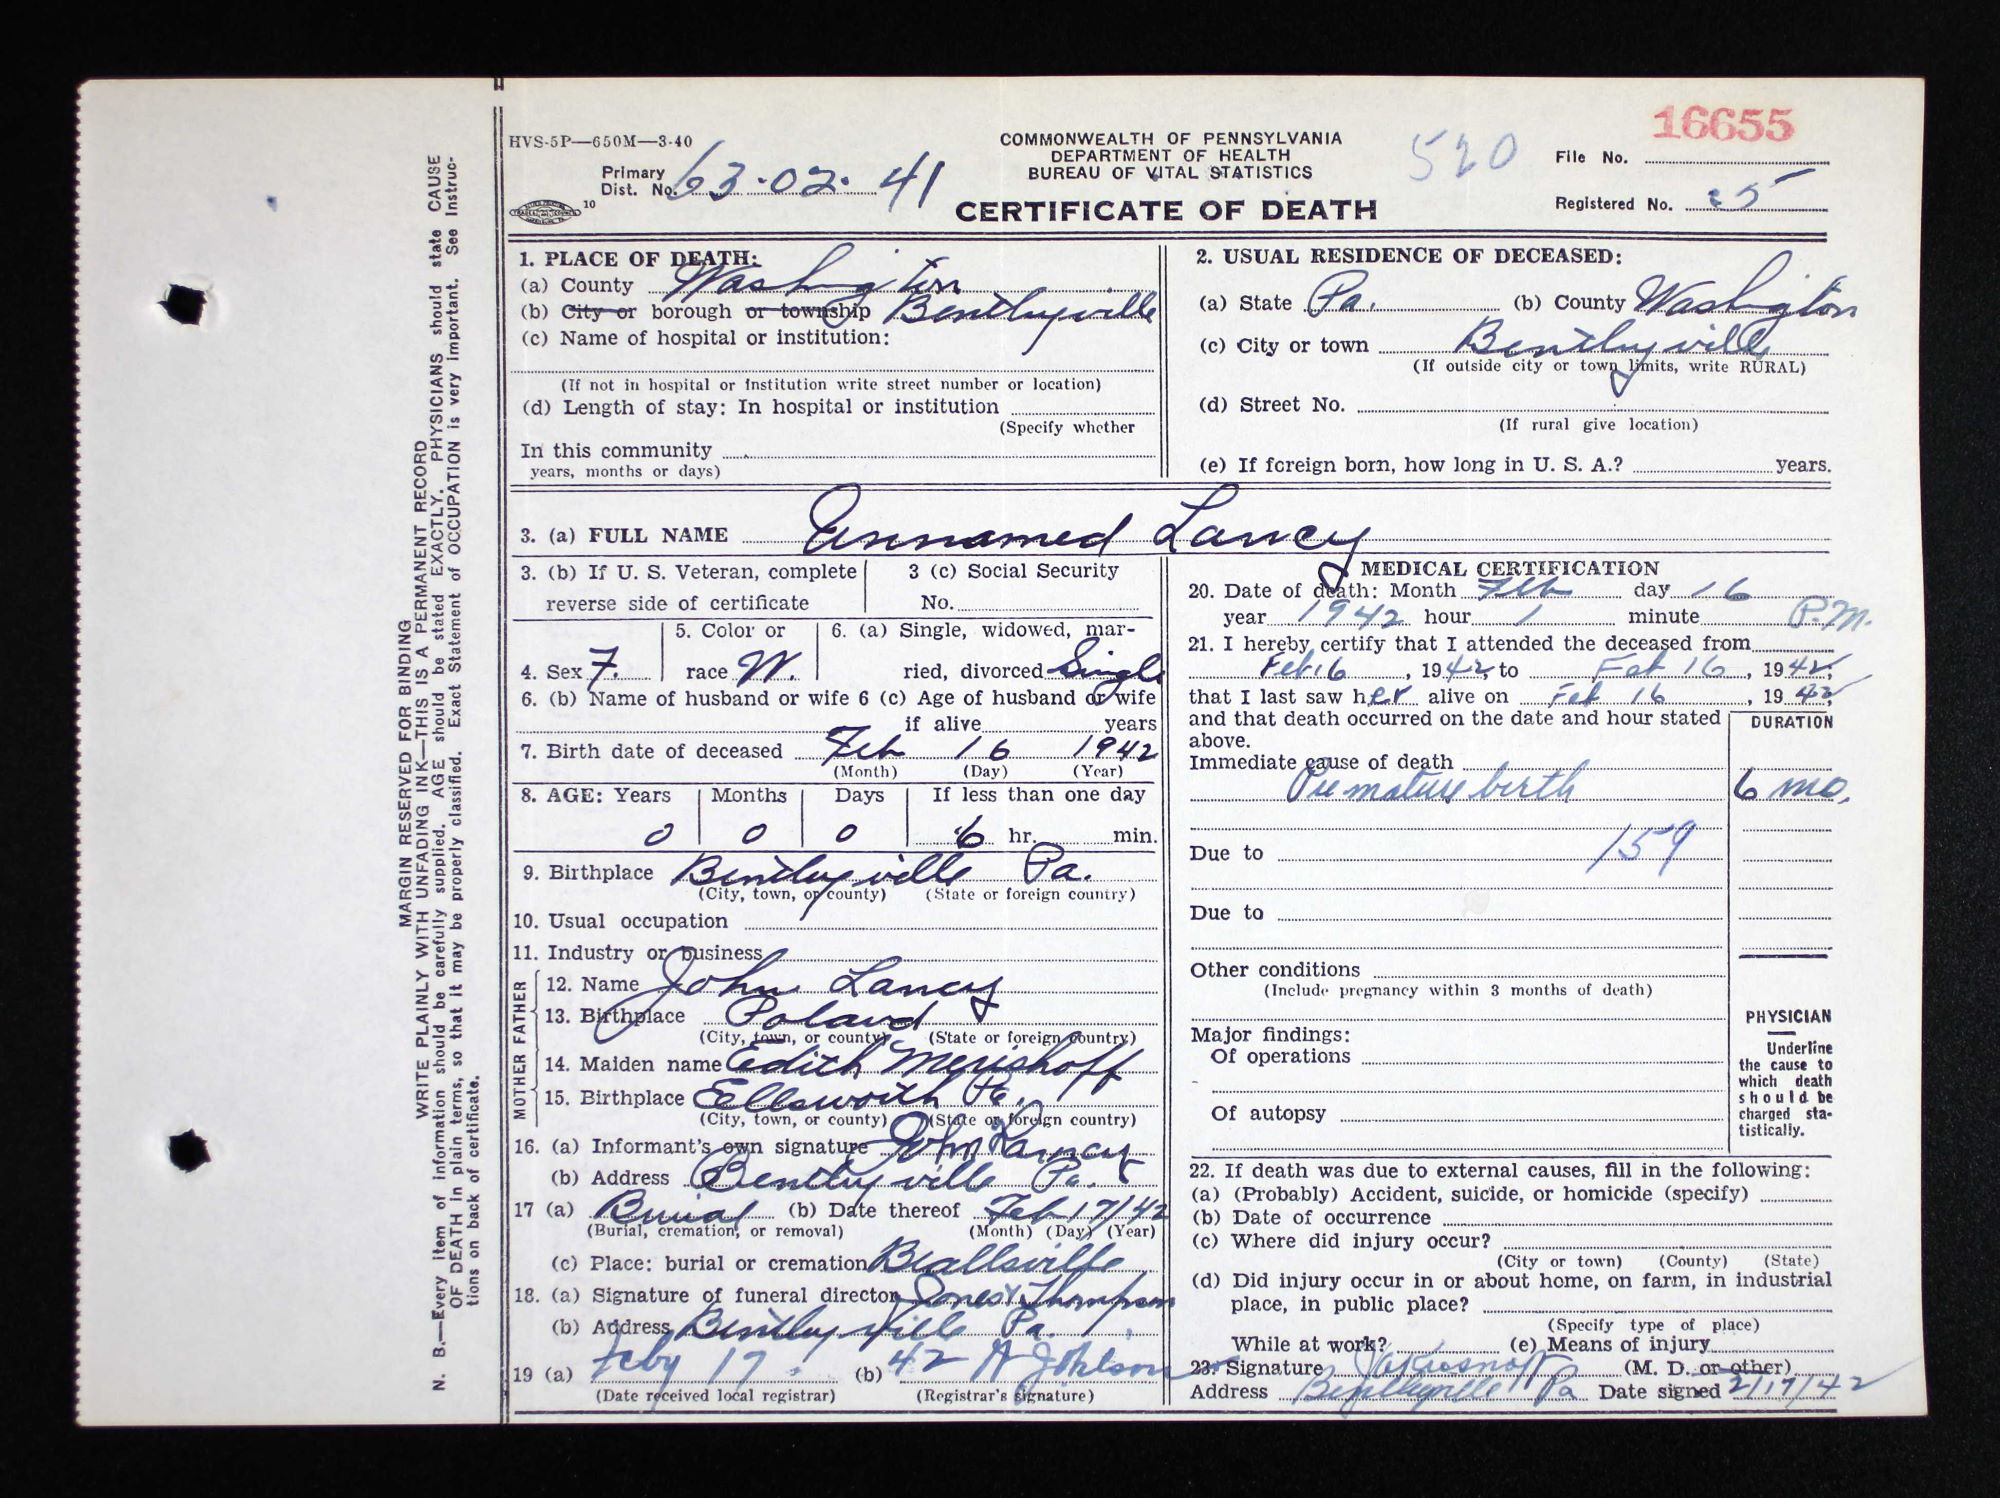 HVS-5P—650M—3-40
COMMONWEALTH OF PENNSYLVANIA
DEPARTMENT OF HEALTH
BUREAU OF VITAL STATISTICS
CERTIFICATE OF DEATH
Primary Dist. No. 63-02-41
10
520
16655
File No.
Registered No. 5
1. PLACE OF DEATH:
(a) County Washington
(b) City or borough or township Bentleyville
(c) Name of hospital or institution:
(If not in hospital or institution write street number or location)
(d) Length of stay: In hospital or institution
(Specify whether
In this community
years, months or days)
2. USUAL RESIDENCE OF DECEASED:
(a) State Pa. (b) County Washington
(c) City or town Bentleyville
(If outside city or town limits, write RURAL)
(d) Street No.
(If rural give location)
(e) If foreign born, how long in U. S. A.? years.
3. (a) FULL NAME Unnamed Lancy
3. (b) If U. S. Veteran, complete
reverse side of certificate
3 (c) Social Security
No.
4. Sex F.
5. Color or
race W.
6. (a) Single, widowed, mar-
ried, divorced Single
6. (b) Name of husband or wife 6 (c) Age of husband or wife
if alive years
7. Birth date of deceased Feb 16 1942
(Month) (Day) (Year)
8. AGE: Years Months Days If less than one day
0 0 0 6 hr. min.
9. Birthplace Bentleyville Pa.
(City, town, or county) (State or foreign country)
10. Usual occupation
11. Industry or business
FATHER
12. Name John Lancy
13. Birthplace Poland
(City, town, or county) (State or foreign country)
MOTHER
14. Maiden name Edith Merishoff
15. Birthplace Ellsworth Pa.
(City, town, or county) (State or foreign country)
16. (a) Informant's own signature John Lancy
(b) Address Bentleyville Pa.
17 (a) Burial (b) Date thereof Feb 17/42
(Burial, cremation, or removal) (Month) (Day) (Year)
(c) Place: burial or cremation Beallsville
18. (a) Signature of funeral director Jones & Thompson
(b) Address Bentleyville Pa.
19 (a) Feby 17 (b) 42
(Date received local registrar) (Registrar's signature)
MEDICAL CERTIFICATION
20. Date of death: Month Feb day 16
year 1942 hour 1 minute P.M.
21. I hereby certify that I attended the deceased from
Feb 16, 1942, to Feb 16, 1942,
that I last saw her alive on Feb 16, 1942,
and that death occurred on the date and hour stated
above.
DURATION
Immediate cause of death
Premature birth 6 mo.
159
Due to
Due to
Other conditions
(Include pregnancy within 3 months of death)
Major findings:
Of operations
Of autopsy
PHYSICIAN
Underline
the cause to
which death
should be
charged sta-
tistically.
22. If death was due to external causes, fill in the following:
(a) (Probably) Accident, suicide, or homicide (specify)
(b) Date of occurrence
(c) Where did injury occur?
(City or town) (County) (State)
(d) Did injury occur in or about home, on farm, in industrial
place, in public place?
(Specify type of place)
While at work? (e) Means of injury
23. Signature (M. D. or other)
Address Bentleyville Pa Date signed 2/17/42
MARGIN RESERVED FOR BINDING
WRITE PLAINLY WITH UNFADING INK—THIS IS A PERMANENT RECORD
N. B.—Every item of information should be carefully supplied. AGE should be stated EXACTLY. PHYSICIANS should state CAUSE
OF DEATH in plain terms, so that it may be properly classified. Exact Statement of OCCUPATION is very important. See Instruc-
tions on back of certificate.